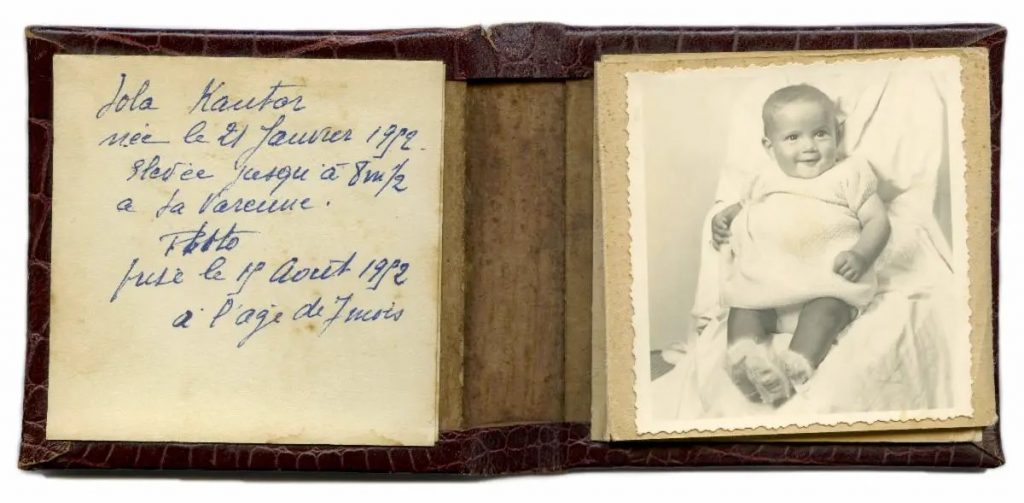 Jola Kantor
née le 21 Janvier 1952.
Elevée jusqu'à 8m 1/2
a La Varenne.
Photo
prise le 15 Août 1952
à l'age de 7 mois